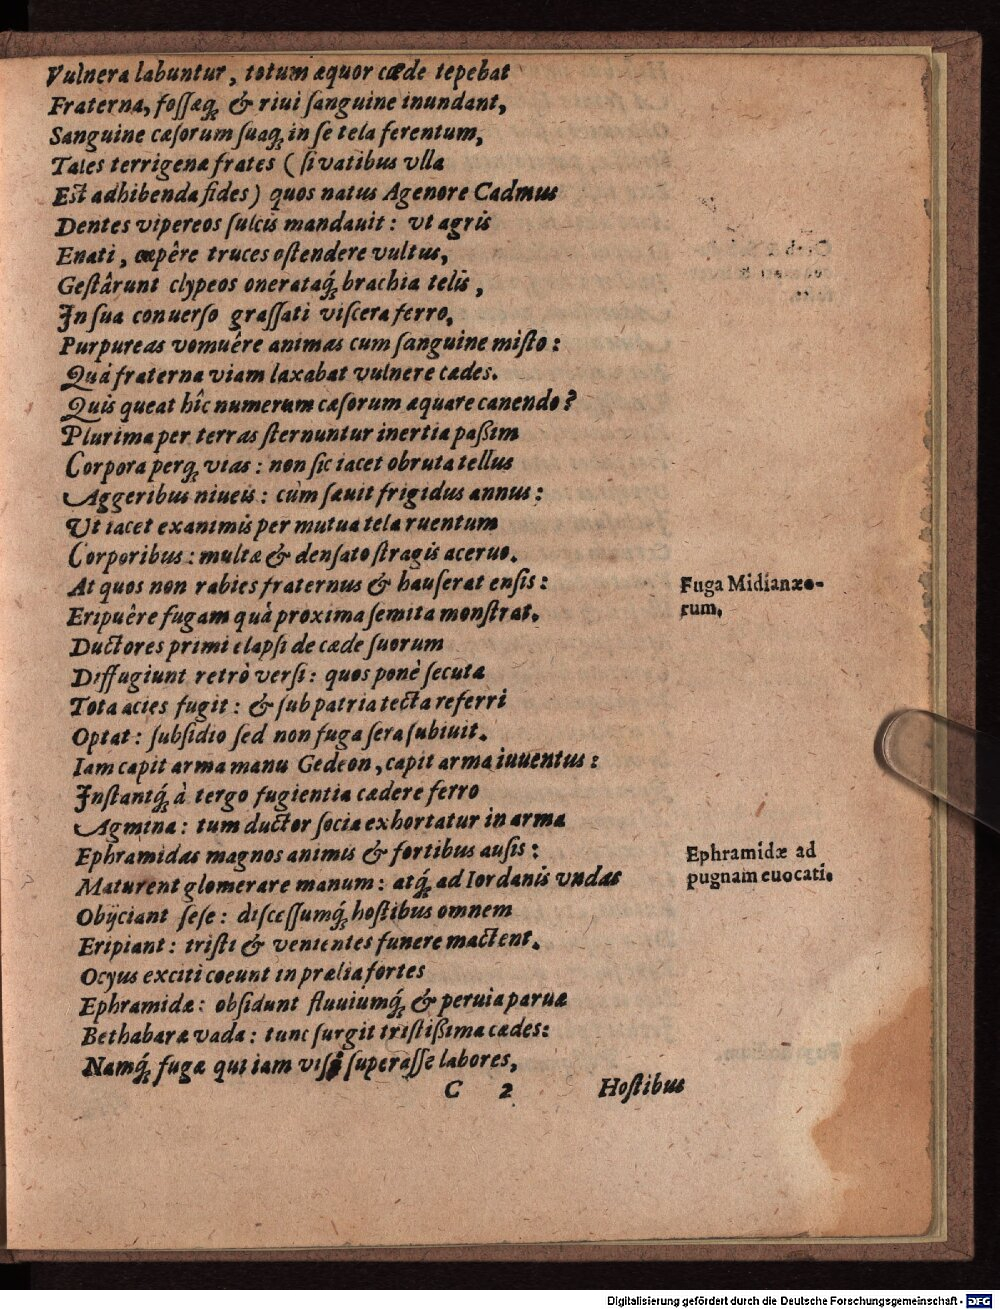 Vulnera labuntur, totum æquor cæde tepebat
Fraterna, fossaq́; & riui sanguine inundant,
Sanguine cæsorum suaq́; in se tela ferentum,
Tales terrigenæ frates ( si vatibus vlla
Est adhibenda fides) quos natus Agenore Cadmus
Dentes vipereos sulcis mandauit: vt agris
Enati, cœpêre truces ostendere vultus,
Gestârunt clypeos onerataq́; brachia telis,
In sua conuerso grassati viscera ferro,
Purpureas vomuêre animas cum sanguine misto:
Quà fraterna viam laxabat vulnere cædes.
Quis queat hîc numerum cæsorum æquare canendo?
Plurima per terras sternuntur inertia paßim
Corpora perq́; vias: non sic iacet obruta tellus
Aggeribus niueis: cùm sæuit frigidus annus:
Ut iacet exanimis per mutua tela ruentum
Corporibus: multæ & densato stragis aceruo.
At quos non rabies fraternus & hauserat ensis:
Fuga Midianæo-
rum.
Eripuêre fugam quà proxima semita monstrat.
Ductores primi elapsi de cæde suorum
Diffugiunt retrò versi: quos ponè secuta
Tota acies fugit: & sub patria tecta referri
Optat: subsidio sed non fuga sera subiuit.
Iam capit arma manu Gedeon, capit arma iuuentus:
Instantq́; à tergo fugientia cædere ferro
Agmina: tum ductor socia exhortatur in arma
Ephramidas magnos animis & fortibus ausis:
Ephramidæ ad
pugnam euocati.
Maturent glomerare manum: atq́; ad Iordanis vndas
Obijciant sese: discessumq́; hostibus omnem
Eripiant: tristi & venientes funere mactent.
Ocyus exciti coeunt in prælia fortes
Ephramidæ: obsidunt fluuiumq́; & peruia paruæ
Bethabaræ vada: tunc surgit tristißima cædes:
Namq́; fugæ qui iam visi superasse labores,
C 2 Hostibus
Digitalisierung gefördert durch die Deutsche Forschungsgemeinschaft - DFG